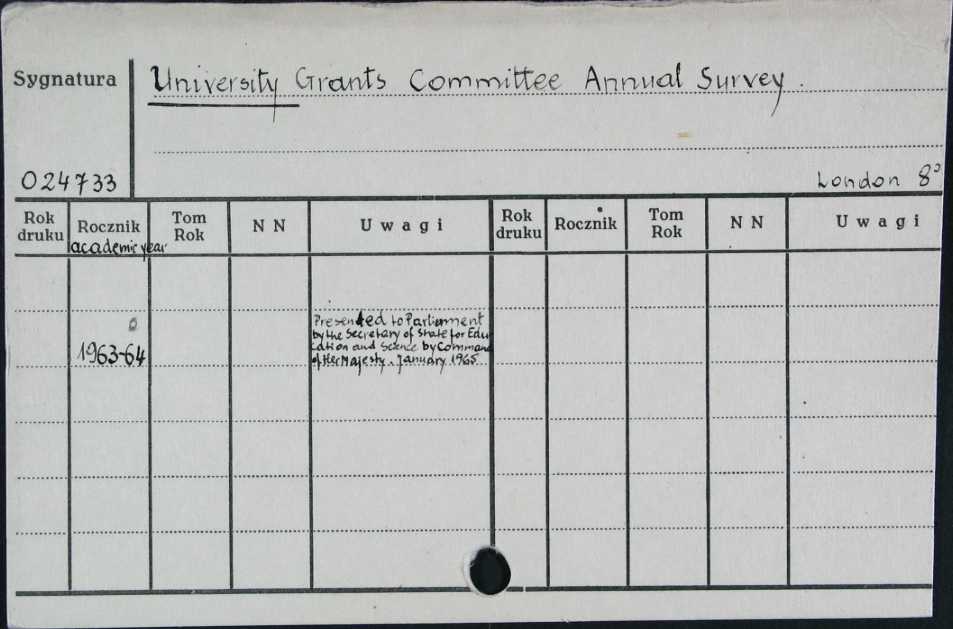 Sygnatura
University Grants Committee Annual Survey.
024733
London 8°
Rok druku Rocznik Tom Rok N N Uwagi Rok druku Rocznik Tom Rok N N Uwagi
academic year
1963-64
Presented to Parliament
by the Secretary of State for Edu
cation and Science by Command
of Her Majesty. January 1965